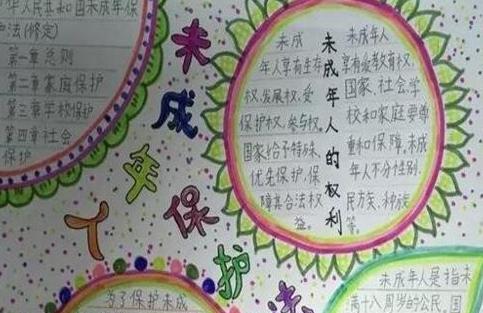 华人民共和国未成年保
护法(修定)
第一章总则
第二章家庭保护
第三章学校保护
第四章社会
保护
未成年人保护法
未成
年人享有生存
权、发展权、受
保护权、参与权。
国家给予特殊、
优先保护、保
障其合法权
益。
未成年人的权利
未成年人
享有受教育权,
国家、社会学
校和家庭要尊
重和保障,未成
年人不分性别、
民族、种族
等。
为了保护未成
未成年人是指未
满十八周岁的公民。国